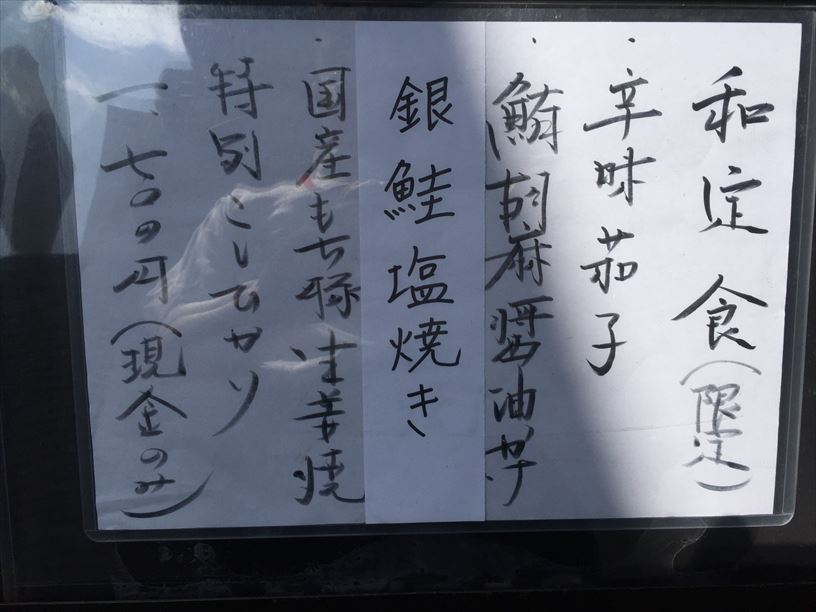 和定食(限定)
・辛味茄子
・鰤胡麻醤油かけ
銀鮭塩焼き
・国産もち豚生姜焼
特別こしひかり
一、七〇〇円(現金のみ)